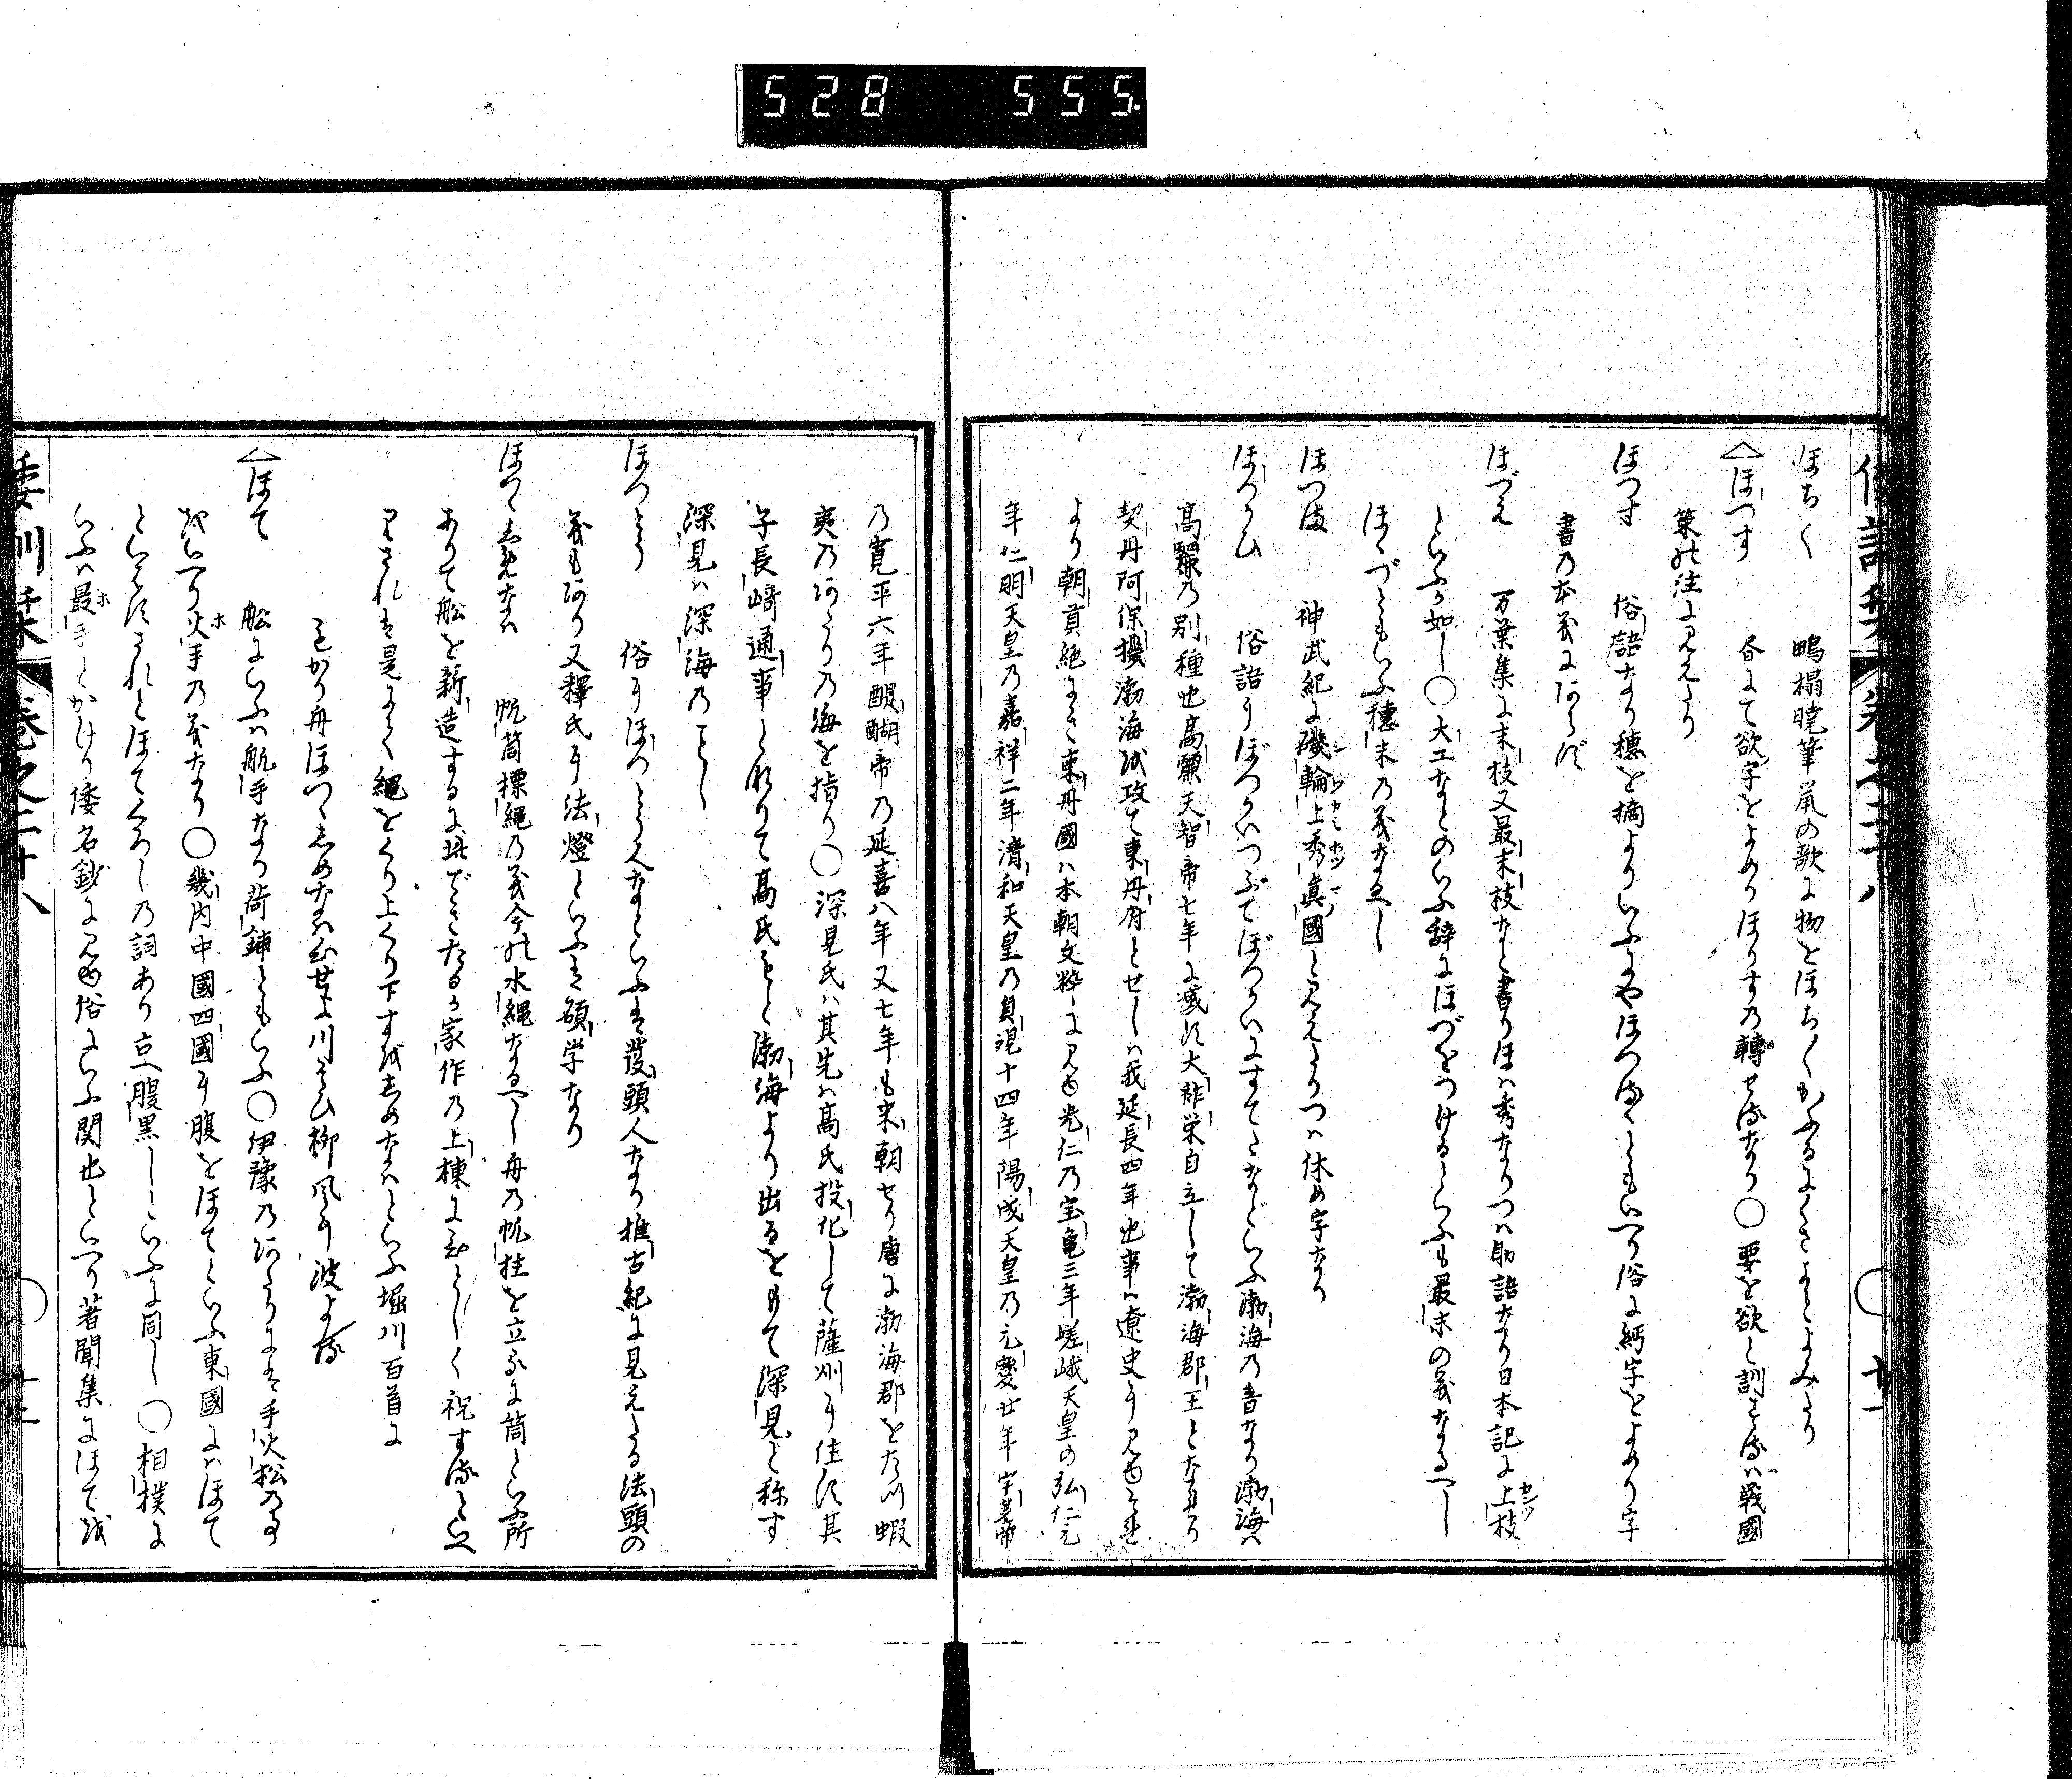 528 555.
ほちく　鴫榻暁筆鼠の歌に物をほちくかふるにくきよとよみたり
△ほつす　音にて欲字をよめりほりすの轉せるなり〇要を欲と訓せるハ戰國
策の注に見えたり
ほつす　俗語なり穂を摘よりいふにやほつゐともいへり俗に綍字をよめり字
書の本義にあらず
ほづえ　万葉集に末枝又最末枝なと書りほハ秀なりつハ助語なり日本記に上枝
といふか如し〇大工なとのいふ辞にほづをつけるといふも最末の義なるへし
ほゝづともいふ穂末の義なるへし
ほつま　神武紀に磯輪上秀眞國と見えたりつハ休め字なり
ほつかひ　俗語にぼつかいつぶてぼつかいにすてゝなどいふ渤海の音なり渤海ハ
高麗の別種也高麗天智帝七年に滅す大祚栄自立して渤海郡王となれり
契丹阿保機渤海を攻て東丹府とせしハ我延長四年也事ハ遼史に見ゆそれ
より朝貢絶にき東丹國ハ本朝文粹に見ゆ光仁の宝亀三年嵯峨天皇の弘仁元
年仁明天皇の嘉祥二年清和天皇の貞観十四年陽成天皇の元慶廿年宇多帝
の寛平六年醍醐帝の延喜八年又七年も来朝せり唐に渤海郡をたつ蝦
夷のあたりの海を指り〇深見氏ハ其先ハ高氏投化して薩州に住す其
子長﨑通事となりて高氏もと渤海より出るをもて深見と称す
深見ハ深海のことし
ほつとう　俗にほつとう人なといふは發頭人なり推古紀に見えたる法頭の
義もあり又釋氏に法燈といふは碩学なり
ほつゝしめなハ　帆筒標縄の義今の水縄なるへし舟の帆柱を立るに筒といふ所
ありて舩を新造するに此できたるか家作の上棟にひとしく祝するといへ
りされは是によく縄をくり上くり下すをしめなハといふ堀川百首に
もかり舟ほつゝしめなハ心せよ川そひ柳風に波よる
△ほて　舩にいふハ航手なり荷鋪ともいふ〇伊豫のあたりにては手火松の事
をいへり火手の義なり〇幾内中國四國に腹をほてといふ東國にハほて
といはすされとほてくろしの詞あり立へ腹黒しといふに同し〇相撲に
いふハ最手とかけり倭名鈔に見ゆ俗にいふ関也といへり著聞集にほてを
倭訓栞　巻之二十八